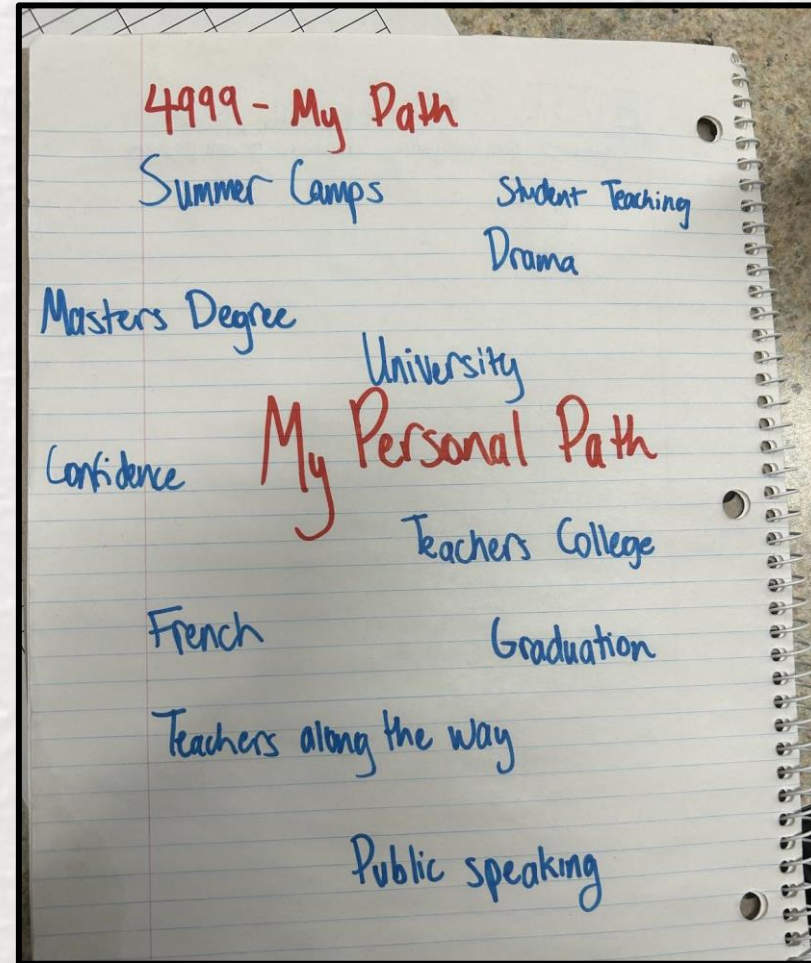 4999 - My Path
Summer Camps
Student Teaching
Drama
Masters Degree
University
My Personal Path
Confidence
Teachers College
French
Graduation
Teachers along the way
Public speaking